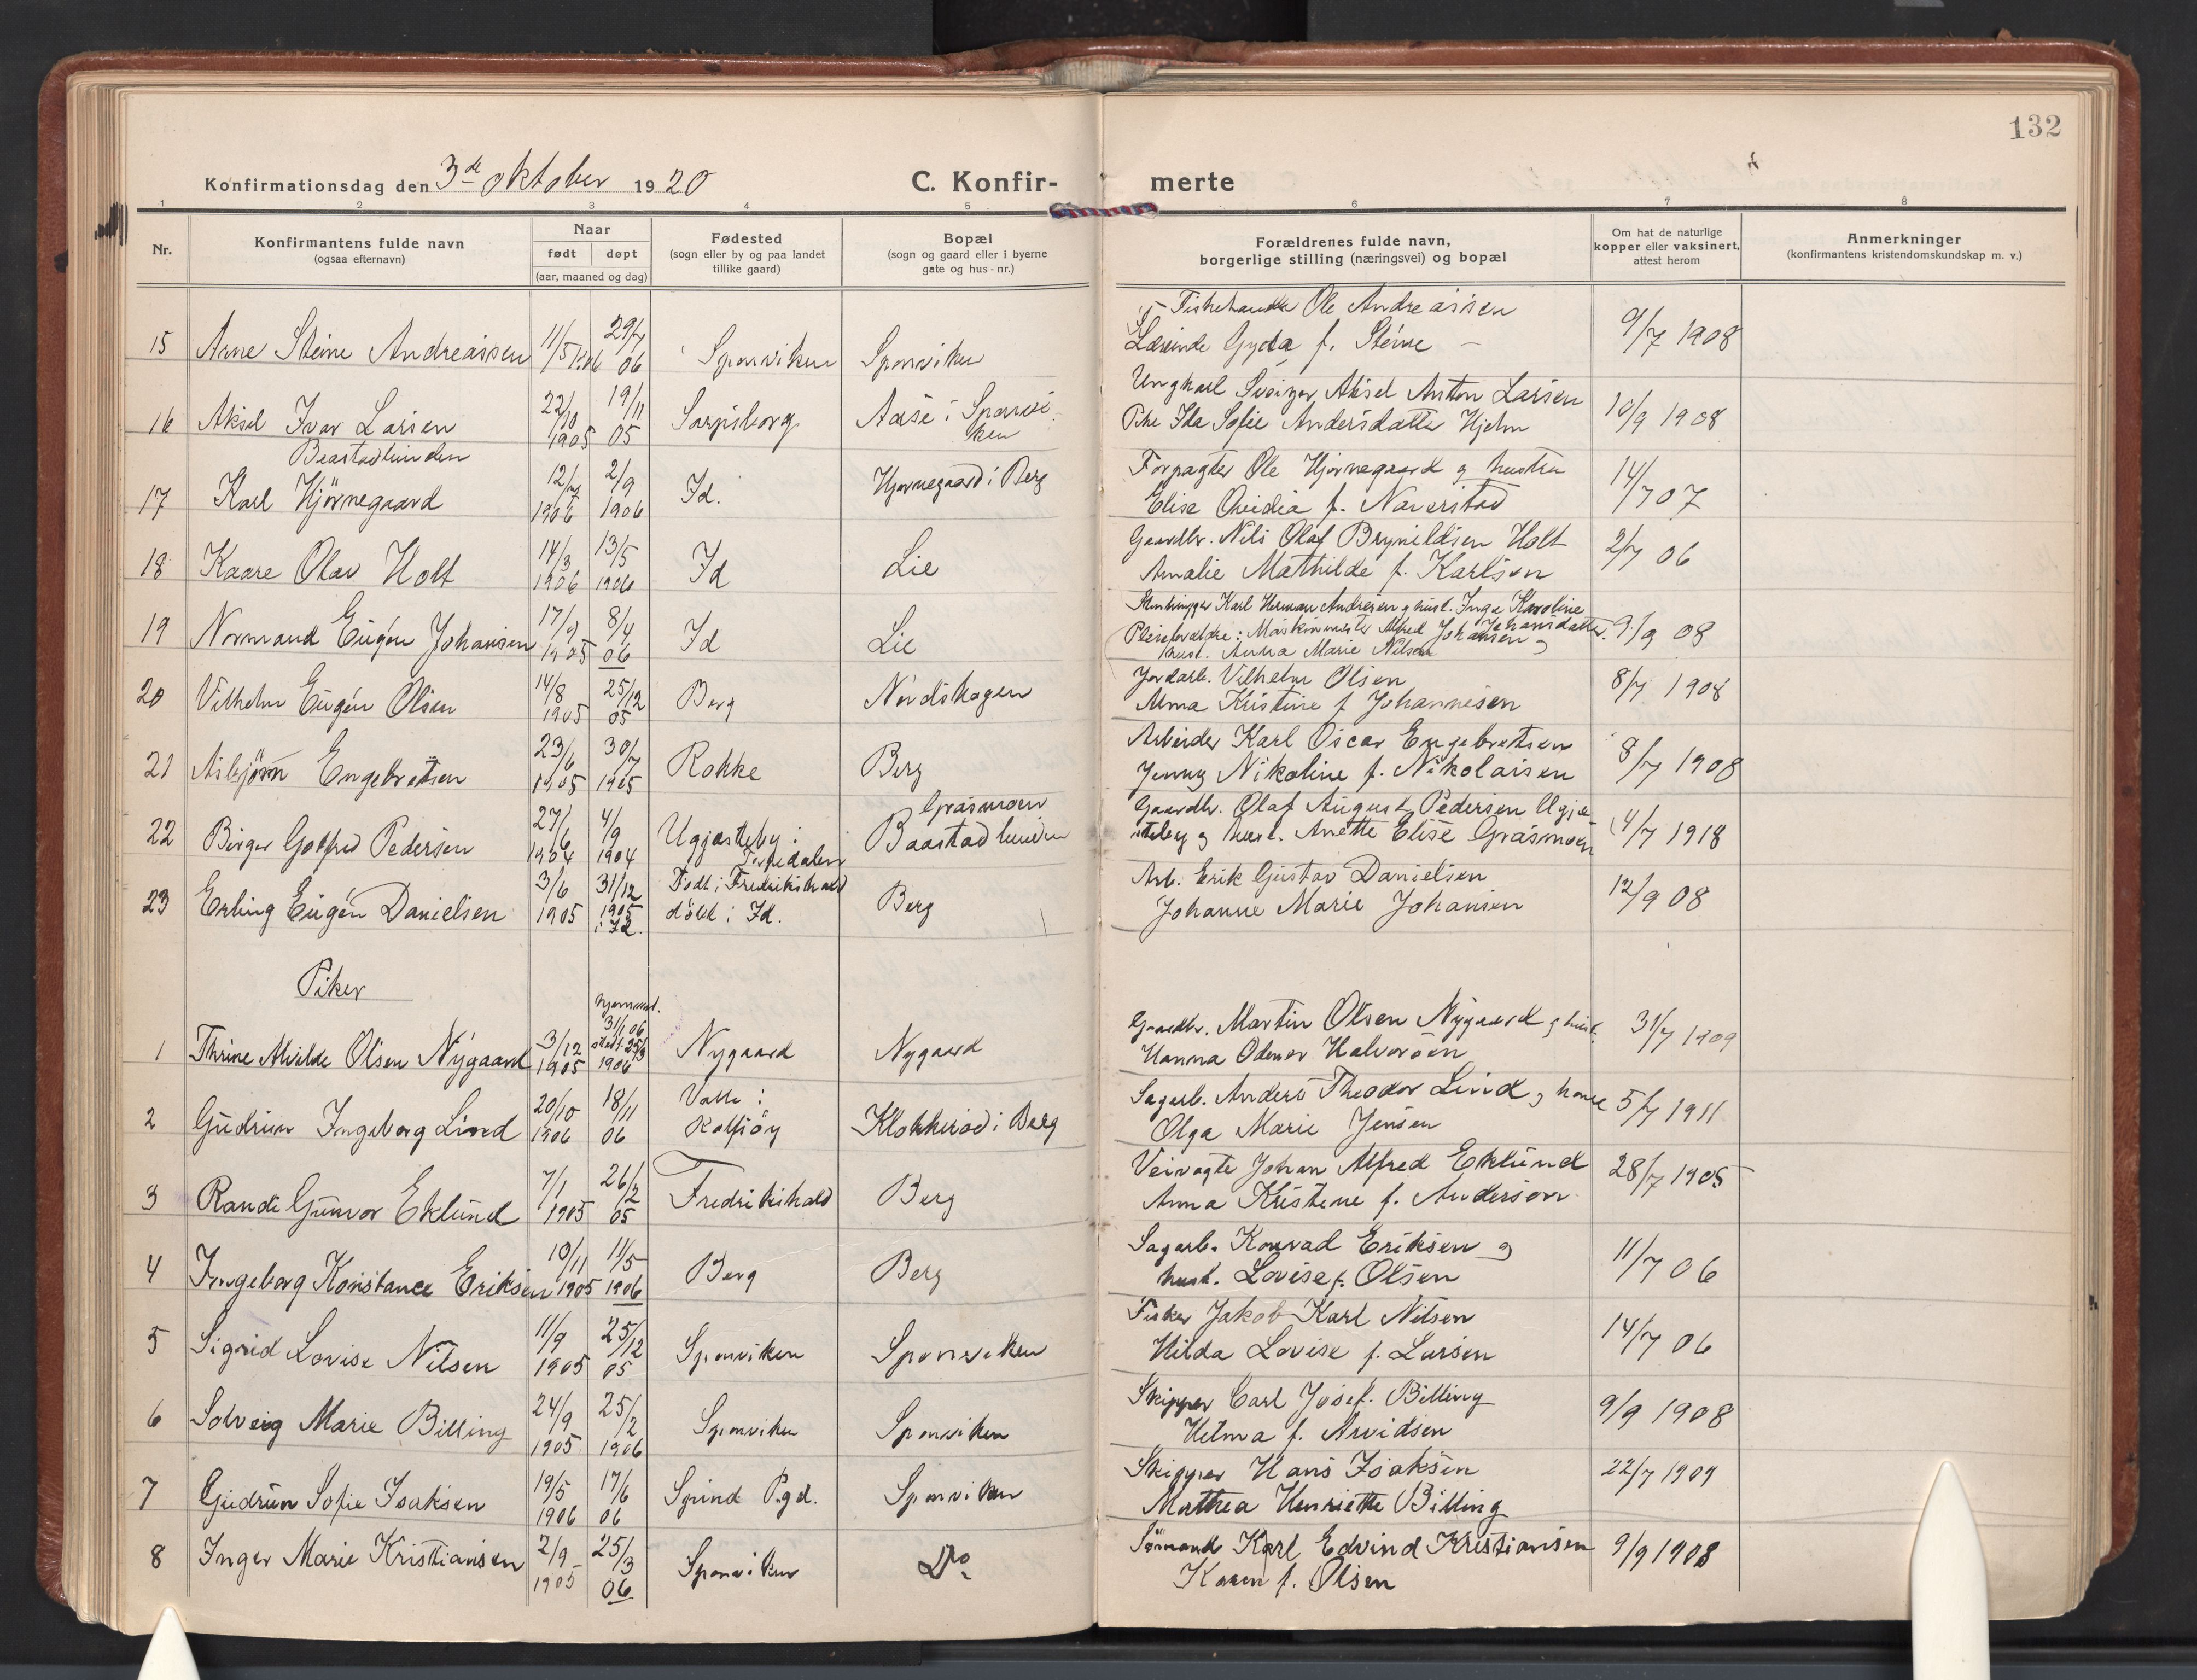 132
Konfirmationsdag den 3de oktober 1920
C. Konfir-
merte
1 2 3 4 5 6 7 8
Nr.
Konfirmantens fulde navn
(ogsaa efternavn)
Naar
født døpt
(aar, maaned og dag)
Fødested
(sogn eller by og paa landet
tillike gaard)
Bopæl
(sogn og gaard eller i byerne
gate og hus-nr.)
Forældrenes fulde navn,
borgerlige stilling (næringsvei) og bopæl
Om hat de naturlige
kopper eller vaksinert,
attest herom
Anmerkninger
(konfirmantens kristendomskundskap m. v.)
15 Arne Steine Andreassen 11/5 1906 29/7 06 Sponviken Sponviken
Ole Andreassen
Gyda f. Steine
9/7 1908
16 Aksel Ivar Larsen 22/10 1905 19/11 05 Sarpsborg Aase i Sponvi-
ken
Ungkarl Aksel Anton Larsen
Pike Ida Sofie Andersdatter Hjelm
10/9 1908
17 Karl Hjörnegaard 12/7 1906 2/9 1906 Id. Hjørnegaard i Berg
Forpagter Ole Hjørnegaard og hustru
Elise f. Naverstad
14/7 07
18 Kaare Olav Holt 14/3 1906 13/5 1906 Id Lie
Gaardbr. Nils Olaf Brynildsen Holt
Amalie Mathilde f. Karlsen
2/7 06
19 Normand Eugén Johansen 17/9 1905 8/4 06 Id Lie
Stenhugger Karl Herman Andresen og hust. Inga Karoline
Johansdatter.
Pleieforældre: Maskinmester Alfred Johansen og
hust. Anna Marie Nilsen
9/9 08
20 Vilhelm Eugén Olsen 14/8 1905 25/12 05 Berg Nordskogen
Jordarb. Vilhelm Olsen
Alma Kristine f Johannesen
8/7 1908
21 Asbjörn Engebretsen 23/6 1905 30/7 1905 Rokke Berg
Arbeider Karl Oscar Engebretsen
Jenny Nikoline f. Nikolaisen
8/7 1908
22 Birger Gotfred Pedersen 27/6 1904 4/9 1904 Ugjesteby i
Torpedalen
Gräsmoen
Baastadlunden
Gaardbr. Olaf August Pedersen Ugje-
steby og hust. Anette Elise Gräsmoen
4/7 1918
23 Erling Eugén Danielsen 3/6 1905 31/12 1905 i Id. Født i Fredrikshald
døbt i Id.
Berg
Arb. Erik Gustav Danielsen
Johanne Marie Johansen
12/9 08
Piker
1 Thrine Alvilde Olsen Nygaard 3/12 1905 hjemmed. 31/1 06 stadf. 25/3 1906 Nygaard Nygaard
Gaardbr. Martin Olsen Nygaard og hust.
Hanna Halvorsen
31/7 1909
2 Gudrun Ingeborg Lind 20/10 1906 18/11 06 Valle i
Rolfsöy
Klokkerød i Berg
Sagarb. Anders Theodor Lind og
Olga Marie Jensen
5/7 1911
3 Randi Gunvor Eklund 7/1 1905 26/2 05 Fredrikshald Berg
Veivogter Johan Alfred Eklund
Anna Kristine f. Anderson
28/7 1905
4 Ingeborg Konstance Eriksen 10/11 1905 11/5 1906 Berg Berg
Sagarb. Konrad Eriksen og
hust. Lovise f. Olsen
11/7 06
5 Sigrid Lovise Nilsen 11/9 1905 25/12 05 Sponviken Sponviken
Fisker Jakob Karl Nilsen
Hilda Lovise f. Larsen
14/7 06
6 Solveig Marie Billing 24/9 1905 25/2 1906 Sponviken Sponviken
Skipper Carl Josef. Billing
Helma f. Arvidsen
9/9 1908
7 Gudrun Sofie Isaksen 19/5 1906 17/6 06 Spind P.gd. Sponviken
Skipper Hans Isaksen
Mathea Henriette Billing
22/7 1909
8 Inger Marie Kristiansen 2/9 1905 25/3 06 Sponviken Do
Sømand Karl Edvind Kristiansen
Karen f. Olsen
9/9 1908